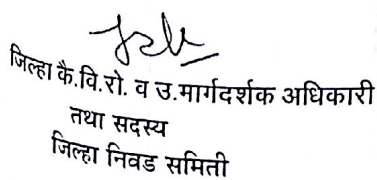 जिल्हा कै.वि.रो. व उ.मार्गदर्शक अधिकारी
तथा सदस्य
जिल्हा निवड समिती